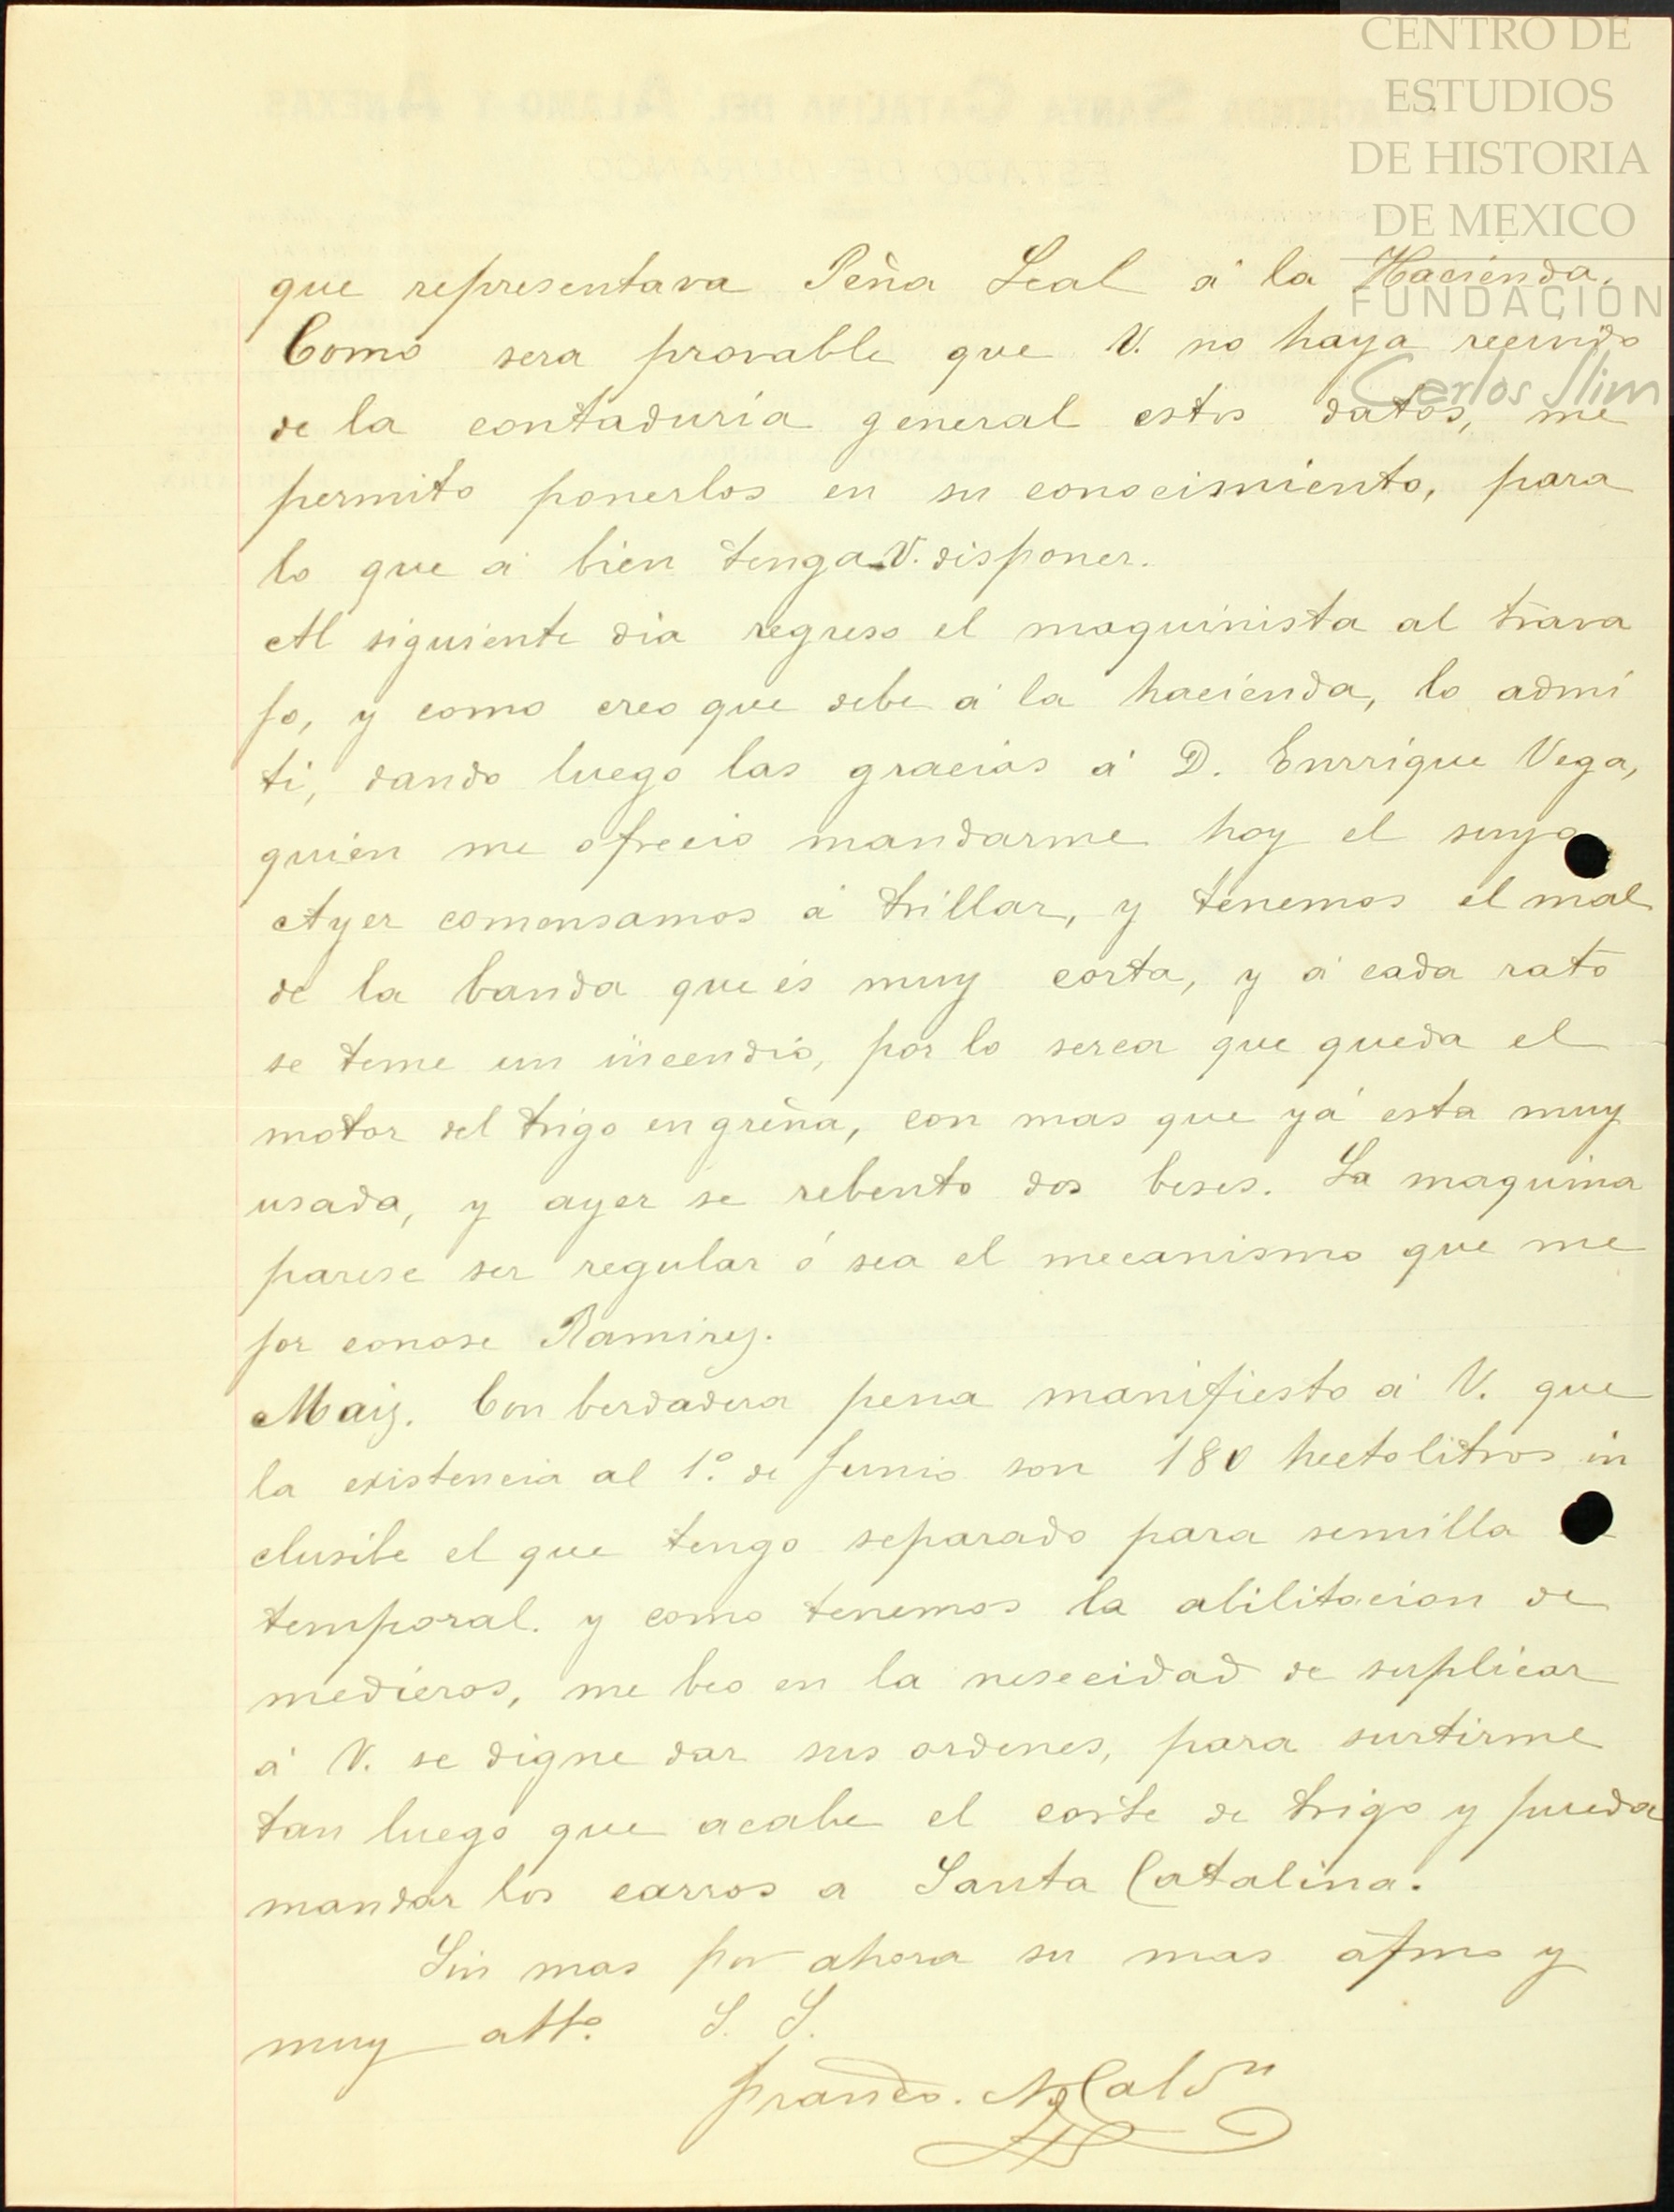 CENTRO DE
ESTUDIOS
DE HISTORIA
DE MEXICO
FUNDACIÓN
Carlos Slim
que representava Peña Leal á la Hacienda.
Como sera provable que V. no haya recivido
de la contaduria general estos datos, me
permito ponerlos en su conocimiento, para
lo que á bien tenga V. disponer.
Al siguiente dia regreso el maquinista al trava
jo, y como creo que debe á la hacienda, lo admi
ti, dando luego las gracias á D. Enrrique Vega,
quien me ofrecio mandarme hoy el suyo
Ayer comensamos á trillar, y tenemos el mal
de la banda que és muy corta, y á cada rato
se teme un incendio, por lo serca que queda el
motor del trigo en greña, con mas que yá esta muy
usada, y ayer se rebento dos beses. La maquina
parese ser regular ó sea el mecanismo que me
jor conose Ramirez.
Maiz. Con berdadera pena manifiesto á V. que
la existencia al 1º de Junio son 180 hectolitros in
clusibe el que tengo separado para semilla
temporal. y como tenemos la abilitacion de
medieros, me beo en la nesecidad de suplicar
á V. se digne dar sus ordenes, para surtirme
tan luego que acabe el corte de trigo y pueda
mandar los carros a Santa Catalina.
Sin mas por ahora su mas afmo y
muy atto. S. S.
Francco.
HACIENDA SANTA CATALINA DEL ALAMO Y ANEXAS
ESTADO DE DURANGO